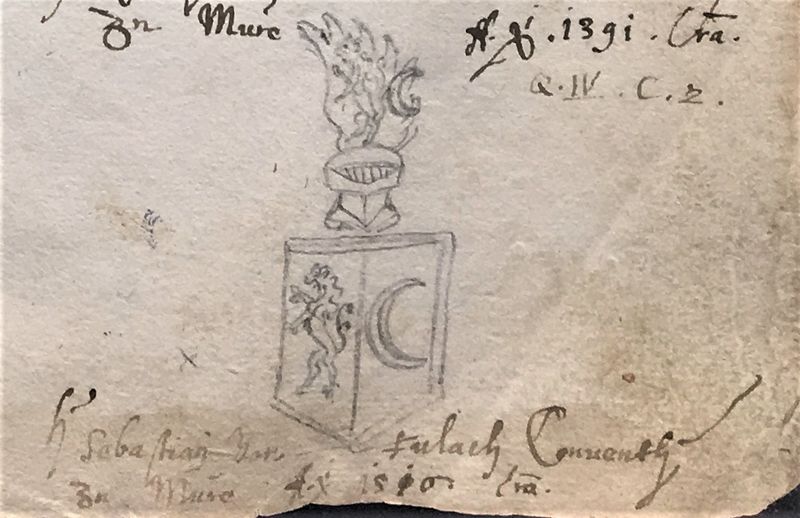 Zn Mure
A. X. 1391. Lra.
Q. IV. C. 2.
H Sebastian Von Fulach Conuenth
Zn Mure A. X 1510. Lra.